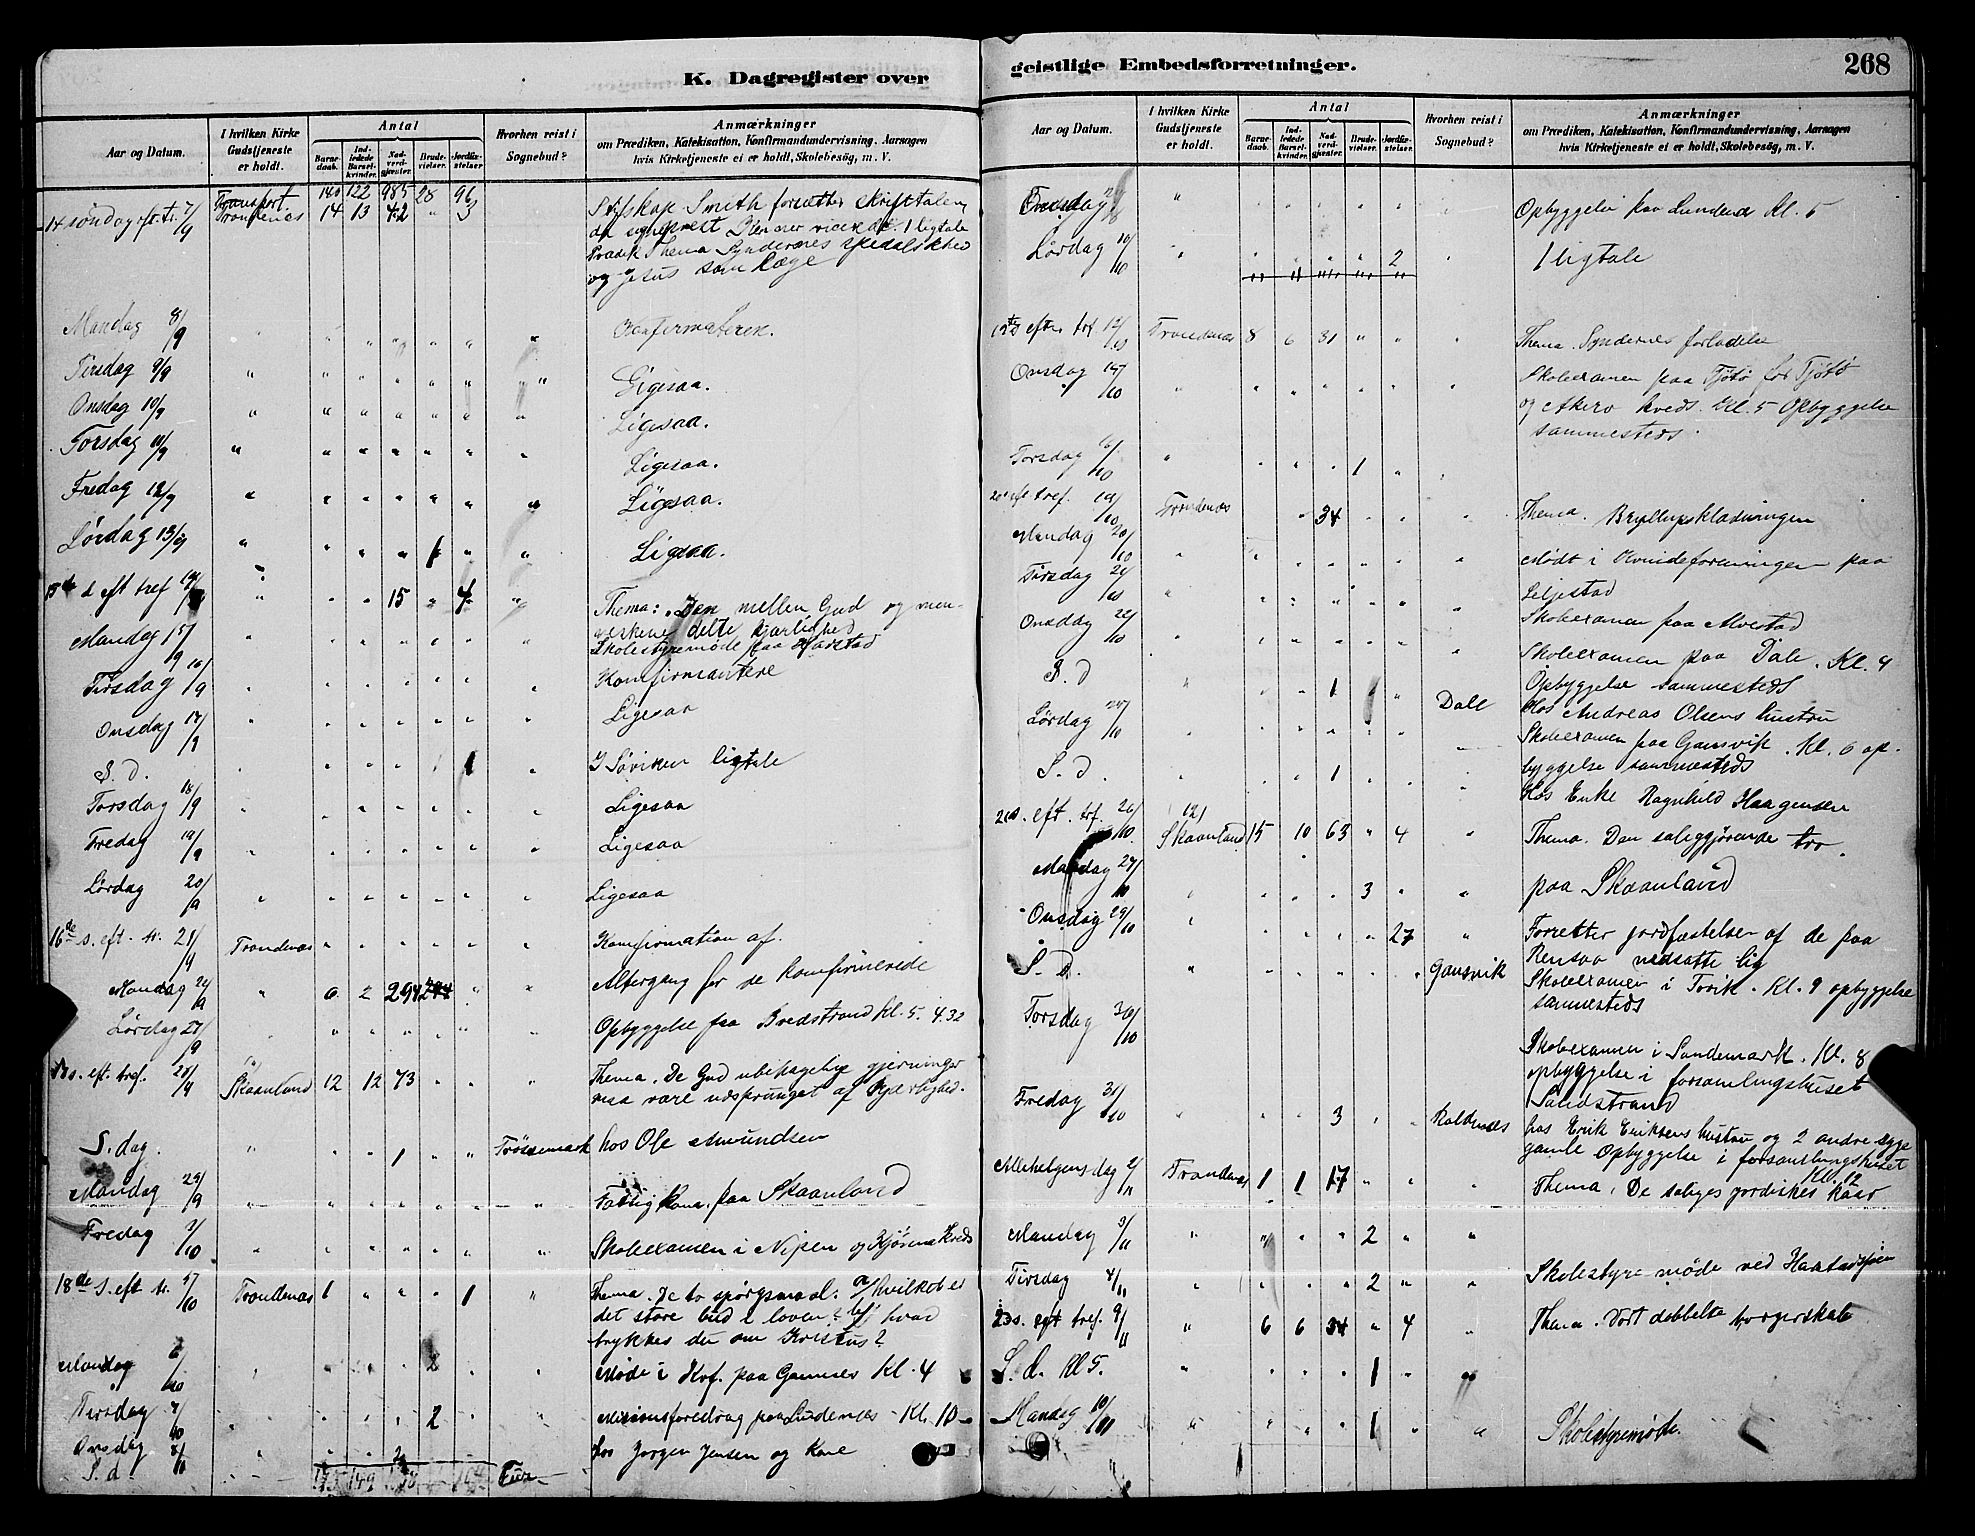 K. Dagregister over
Aar og Datum.
I hvilken Kirke Gudstjeneste er holdt.
Antal
Barnedaab.
Indledede Barselkvinder.
Nadverdgjester.
Brudevielser.
Jordfæstelser.
Hvorhen reist i Sognebud?
Anmærkninger
om Prædiken, Katekisation, Konfirmandundervisning, Aarsagen
hvis Kirketjeneste ei er holdt, Skolebesög, m. V.
Transport. 140 122 985 28 96
14 søndag eft. tr. 7/9 Trondenes 14 13 42 " 3
Smith fortsætter skrifttalen
1 ligtale
Thema Syndernes spedalskhed
og Jesus som Læge
Mandag 8/9 " " " " " " Konfirmanteren.
Tirsdag 9/9 " " " " " " " Ligesaa.
Onsdag 10/9 " " " " " " " Ligesaa.
Torsdag 11/9 " " " " " " " Ligesaa.
Fredag 12/9 " " " " " " " Ligesaa.
Lørdag 13/9 " " " " 1 " " Ligesaa.
15de s eft tref 14/9 " " " 15 " 4 " Thema: Den mellem Gud og men-
neskene delte kjærlighed
Mandag 15/9 " " " " " " " Skolestyremøde paa Harstad
Tirsdag 16/9 " " " " " " " Konfirmantere
Onsdag 17/9 " " " " " " " Ligesaa
S. d. " " " " 1 " I Søviken ligtale
Torsdag 18/9 " " " " " " " Ligesaa
Fredag 19/9 " " " " " " " Ligesaa
Lørdag 20/9 " " " " " " " Ligesaa
16de s. eft. tr. 21/9 Trondenes " " " " " " Konfirmation af.
Mandag 22/9 " 6 2 294 " " Altergang for de konfirmerede
Lørdag 27/9 " " " " " " Opbyggelse paa Bredstrand Kl. 5.
s. eft. tref. 28/9 Skaanland 12 12 73 " " " Thema. De Gud ubehagelige gjerninger
maa være udsprunget af Kjærlighed.
S. dag. " " " 1 " " Trøssemark hos Ole Amundsen
Mandag 29/9 " " " " " " " Fattigkom. paa Skaanland
Fredag 3/10 " " " " " " Skolexamen i Nipen og Kjørina Kreds
18de s. eft tr. 5/10 Trondenes 1 " " " 1 " Thema. De to spørgsmaal. a/ hvilket er
det store bud i loven? b/ hvad
tykkes der om Kristus?
Mandag 6/10 " " " " 2 " " Møde i Kvf. paa Gamnes Kl. 4
Tirsdag 7/10 " " " 2 " " Missionsforedrag paa Kl. 10
Onsdag 8/10 hos Jørgen Jensen og Kone
S. d. " 2
geistlige Embedsforretninger.
268
Aar og Datum.
I hvilken Kirke Gudstjeneste er holdt.
Antal
Barnedaab.
Indledede Barselkvinder.
Nadverdgjester.
Brudevielser.
Jordfæstelser.
Hvorhen reist i Sognebud?
Anmærkninger
om Prædiken, Katekisation, Konfirmandundervisning, Aarsagen
hvis Kirketjeneste ei er holdt, Skolebesög, m. V.
Onsdag " " " " " " " Opbyggelse paa Lundenes Kl. 5
Lørdag 10/10 " " " " " 2 " 1 ligtale
efter tref 12/10 Trondenes 8 6 31 " " " Thema. Syndernes forladelse
Onsdag 15/10 " " " " " " " Skolexamen paa Tjøtø for Tjøtø
og Akerø kreds. Kl. 5 Opbyggelse
sammesteds.
Torsdag 16/10 " " " " 1 " "
tref. 19/10 Trondenes " 34 " " " Thema. Bryllupsklædningen
Mandag 20/10 " " " " " " " Mødt i Kvindeforeningen paa
Leljestad
Tirsdag 21/10 " " " " " " " Skolexamen paa Alvestad
Onsdag 22/10 " " " " " " " Skolexamen paa Dale. Kl. 4
Opbyggelse sammesteds
S. d " " " 1 " " Dale Hos Andreas Olsens hustru
Lørdag 25/10 " " " " " " Skolexamen paa Gansvik. Kl. 6 op-
byggelse sammesteds
S. d. " " " 1 " " " Hos Enke Ragnhild Haagensen
21s. eft. tref. 26/10 Skaanland 15 10 63 " 4 " Thema. Den saliggjørende tro.
Mandag 27/10 " " " " 3 " " paa Skaanland
Onsdag 29/10 " " " " " 27 " Forretter jordfæstelser af de paa
Rensaa nedsatte lig
S. d. " " " " " " Gansvik Skolexamen i Tovik. Kl. 9 opbyggelse
sammesteds
Torsdag 30/10
Skolexamen i Sandemark. Kl. 8
opbyggelse i forsamlingshuset
Sandstrand
Fredag 31/10 " " " 3 " " Roldenes hos Erik Eriksens hustru og 2 andre syge
gamle Opbyggelse i forsamlingshuset
Kl. 12
Allehelgensdag 2/11 Trondenes 1 1 17 " " " Thema. De saliges jordiske kaar
Mandag 3/11 " " " " 2 " "
Tirsdag 4/11 " " " " 2 " Skolestyremøde ved Harstadsjøen
23s. eft tref. 9/11 " 6 6 34 " 4 " Thema. Vort dobbelte borgerskab
S. d. Kl 5. " " " " 1 " "
Mandag 10/11 " " " " 1 " " Skolestyremøde.